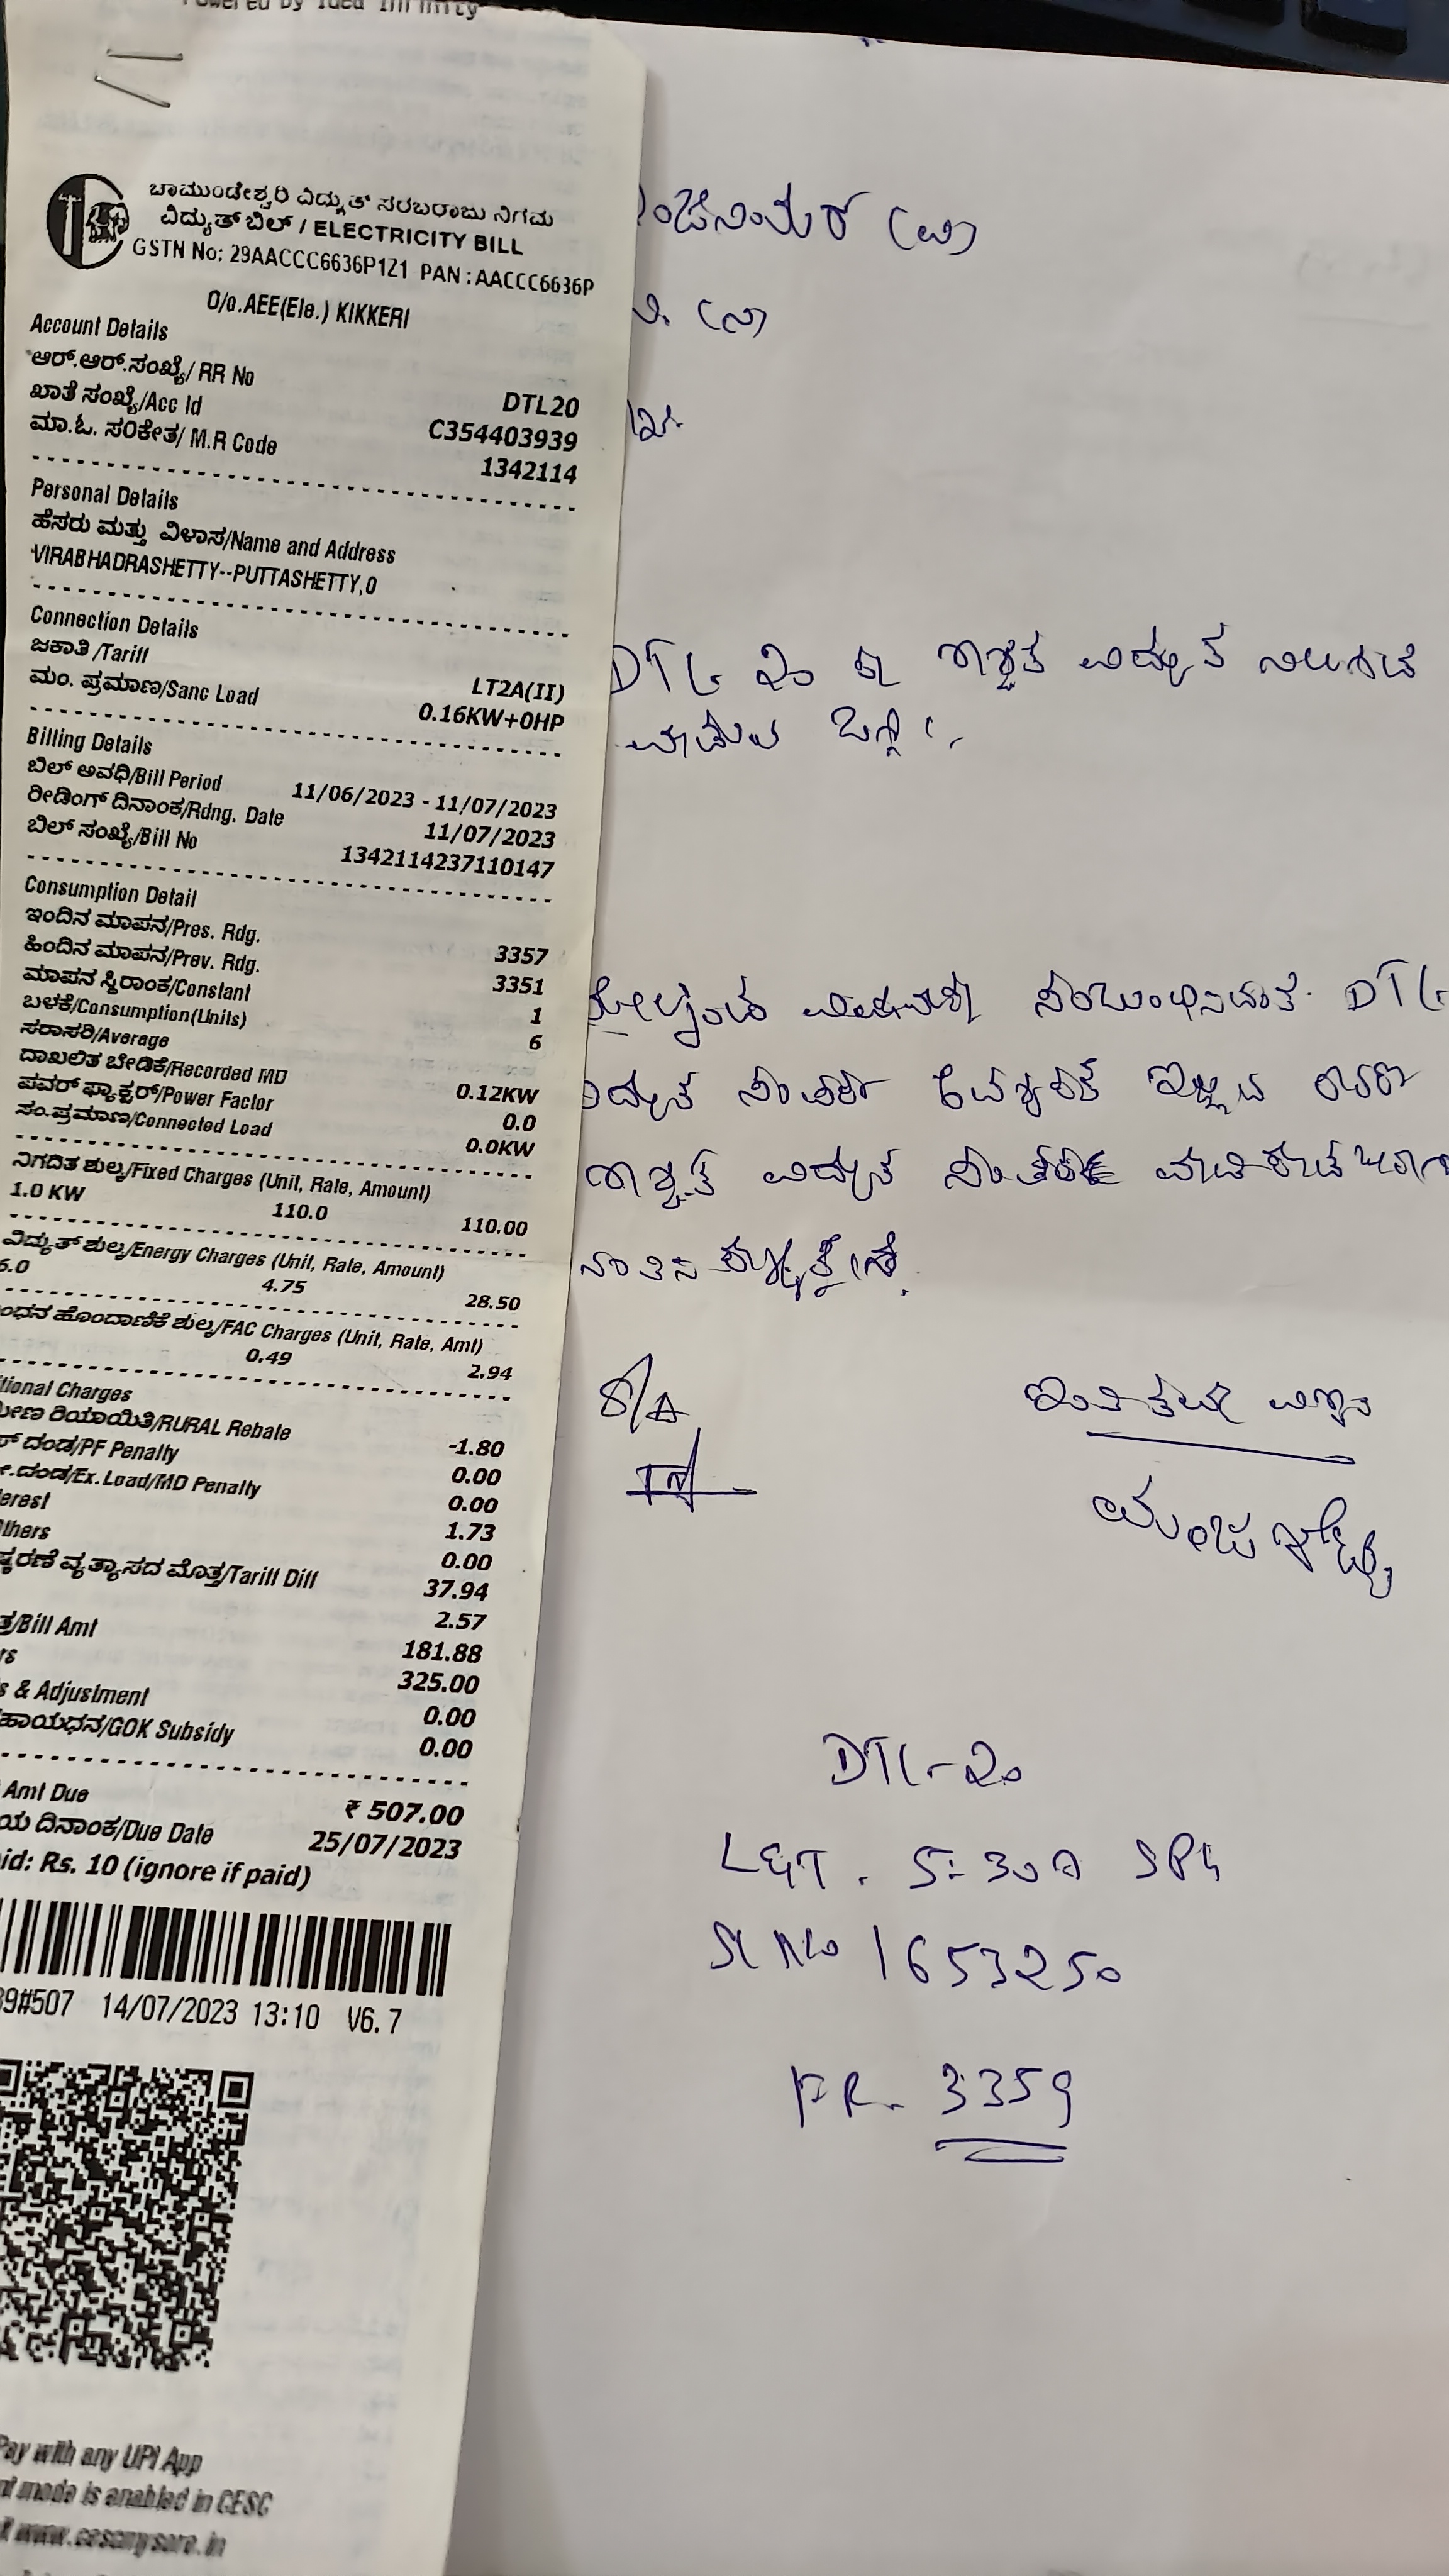 Powered by Idea Infinity
ಚಾಮುಂಡೇಶ್ವರಿ ವಿದ್ಯುತ್ ಸರಬರಾಜು ನಿಗಮ
ವಿದ್ಯುತ್ ಬಿಲ್ / ELECTRICITY BILL
GSTN No: 29AACCC6636P1Z1 PAN : AACCC6636P
O/o.AEE(Ele.) KIKKERI
Account Details
ಆರ್.ಆರ್.ಸಂಖ್ಯೆ/ RR No DTL20
ಖಾತೆ ಸಂಖ್ಯೆ/Acc Id C354403939
ಮಾ.ಓ. ಸಂಕೇತ/ M.R Code 1342114
Personal Details
ಹೆಸರು ಮತ್ತು ವಿಳಾಸ/Name and Address
VIRABHADRASHETTY--PUTTASHETTY,0
Connection Details
ಜಕಾತಿ /Tariff LT2A(II)
ಮಂ. ಪ್ರಮಾಣ/Sanc Load 0.16KW+0HP
Billing Details
ಬಿಲ್ ಅವಧಿ/Bill Period 11/06/2023 - 11/07/2023
ರೀಡಿಂಗ್ ದಿನಾಂಕ/Rdng. Date 11/07/2023
ಬಿಲ್ ಸಂಖ್ಯೆ/Bill No 1342114237110147
Consumption Detail
ಇಂದಿನ ಮಾಪನ/Pres. Rdg. 3357
ಹಿಂದಿನ ಮಾಪನ/Prev. Rdg. 3351
ಮಾಪನ ಸ್ಥಿರಾಂಕ/Constant 1
ಬಳಕೆ/Consumption(Units) 6
ಸರಾಸರಿ/Average
ದಾಖಲಿತ ಬೇಡಿಕೆ/Recorded MD 0.12KW
ಪವರ್ ಫ್ಯಾಕ್ಟರ್/Power Factor 0.0
ಸಂ.ಪ್ರಮಾಣ/Connected Load 0.0KW
ನಿಗದಿತ ಶುಲ್ಕ/Fixed Charges (Unit, Rate, Amount)
1.0 KW 110.0 110.00
ವಿದ್ಯುತ್ ಶುಲ್ಕ/Energy Charges (Unit, Rate, Amount)
6.0 4.75 28.50
ಂಧನ ಹೊಂದಾಣಿಕೆ ಶುಲ್ಕ/FAC Charges (Unit, Rate, Amt)
0.49 2.94
tional Charges
ಮೀಣ ರಿಯಾಯಿತಿ/RURAL Rebate -1.80
ದಂಡ/PF Penalty 0.00
ದಂಡ/Ex.Load/MD Penalty 0.00
erest 1.73
Others 0.00
ಷ್ಕರಣೆ ವ್ಯತ್ಯಾಸದ ಮೊತ್ತ/Tariff Diff 37.94
2.57
/Bill Amt 181.88
rs 325.00
s & Adjustment 0.00
ಹಾಯಧನ/GOK Subsidy 0.00
Amt Due ₹ 507.00
ಯ ದಿನಾಂಕ/Due Date 25/07/2023
id: Rs. 10 (ignore if paid)
39#507 14/07/2023 13:10 V6.7
Pay with any UPI App
nt mode is enabled in CESC
it www.cescmysore.in
ಂಜಿನಿಯರ್ (ವಿ)
DTL 20 ಶಾಶ್ವತ ವಿದ್ಯುತ್ ನಿಲುಗಡೆ
ಮಾಡುವ ಬಗ್ಗೆ.
ಮೇಲ್ಕಂಡ ವಿಷಯಕ್ಕೆ ಸಂಬಂಧಿಸಿದಂತೆ DTL
ವಿದ್ಯುತ್ ಸಂಪರ್ಕ ಅವಶ್ಯಕತೆ ಇಲ್ಲದ ಕಾರಣ
ಶಾಶ್ವತ ವಿದ್ಯುತ್
ಇಂತಿ ತಮ್ಮ ವಿಶ್ವಾಸಿ
ಮಂಜುಶೆಟ್ಟಿ
DTL-20
L&T. 5-30A SPh
Sl No 1653250
FR- 3359